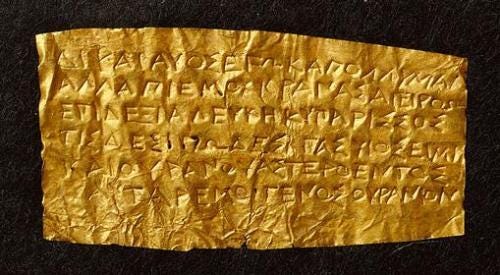 ΔΙΨΑΙΑΥΟΣΕΓΩΚΑΠΟΛΛΥΜΑΙ
ΑΛΛΑΠΙΕΜΟΥΚΡΑΝΑΣΑΙΕΙΡΟΩ
ΕΠΙΔΕΞΙΑΛΕΥΚΗΚΥΠΑΡΙΣΣΟΣ
ΤΙΣΔΕΣΙΠΩΔΕΣΙΓΑΣΥΙΟΣΕΙΜΙ
ΚΑΙΟΥΡΑΝΟΥΑΣΤΕΡΟΕΝΤΟΣ
ΑΥΤΑΡΕΜΟΙΓΕΝΟΣΟΥΡΑΝΙΟΝ